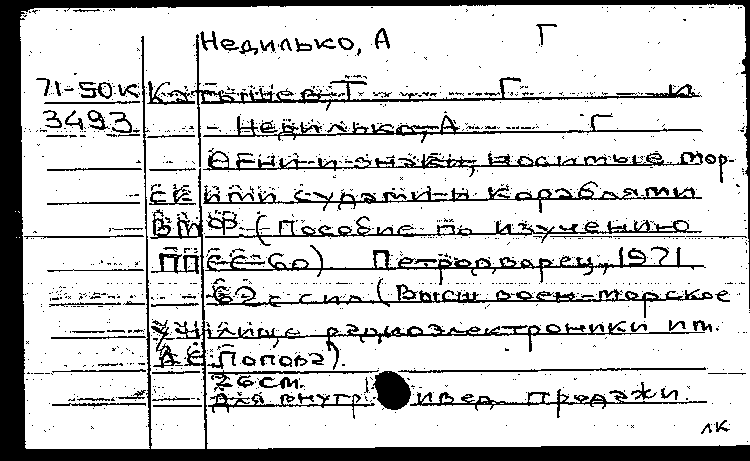 Недилько, А Г
71-50к Катынцев, Т Г и
3493 Недилько, А Г
Огни и знаки, носимые мор-
скими судами и кораблями
ВМФ. (Пособие по изучению
ППСС-60). Петродворец, 1971.
62 с с ил (Высш воен-морское
училище радиоэлектроники им.
А.С.Попова).
26 см.
Для внутр. продажи.
ЛК